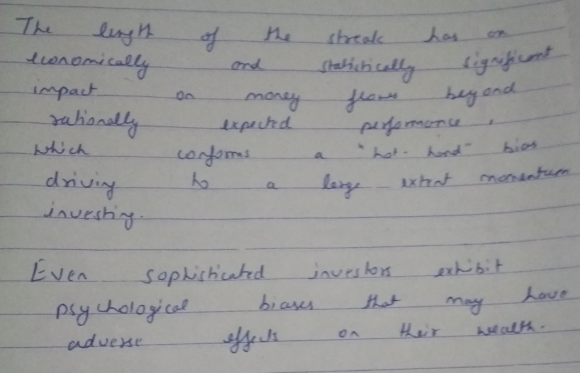 The length of the streak has an
economically and statistically significant
impact on money flows beyond
rationally expected performance,
which conforms a "hot-hand" bias
driving to a large extent momentum
investing.
Even sophisticated investors exhibit
psychological biases that may have
adverse effects on their wealth.